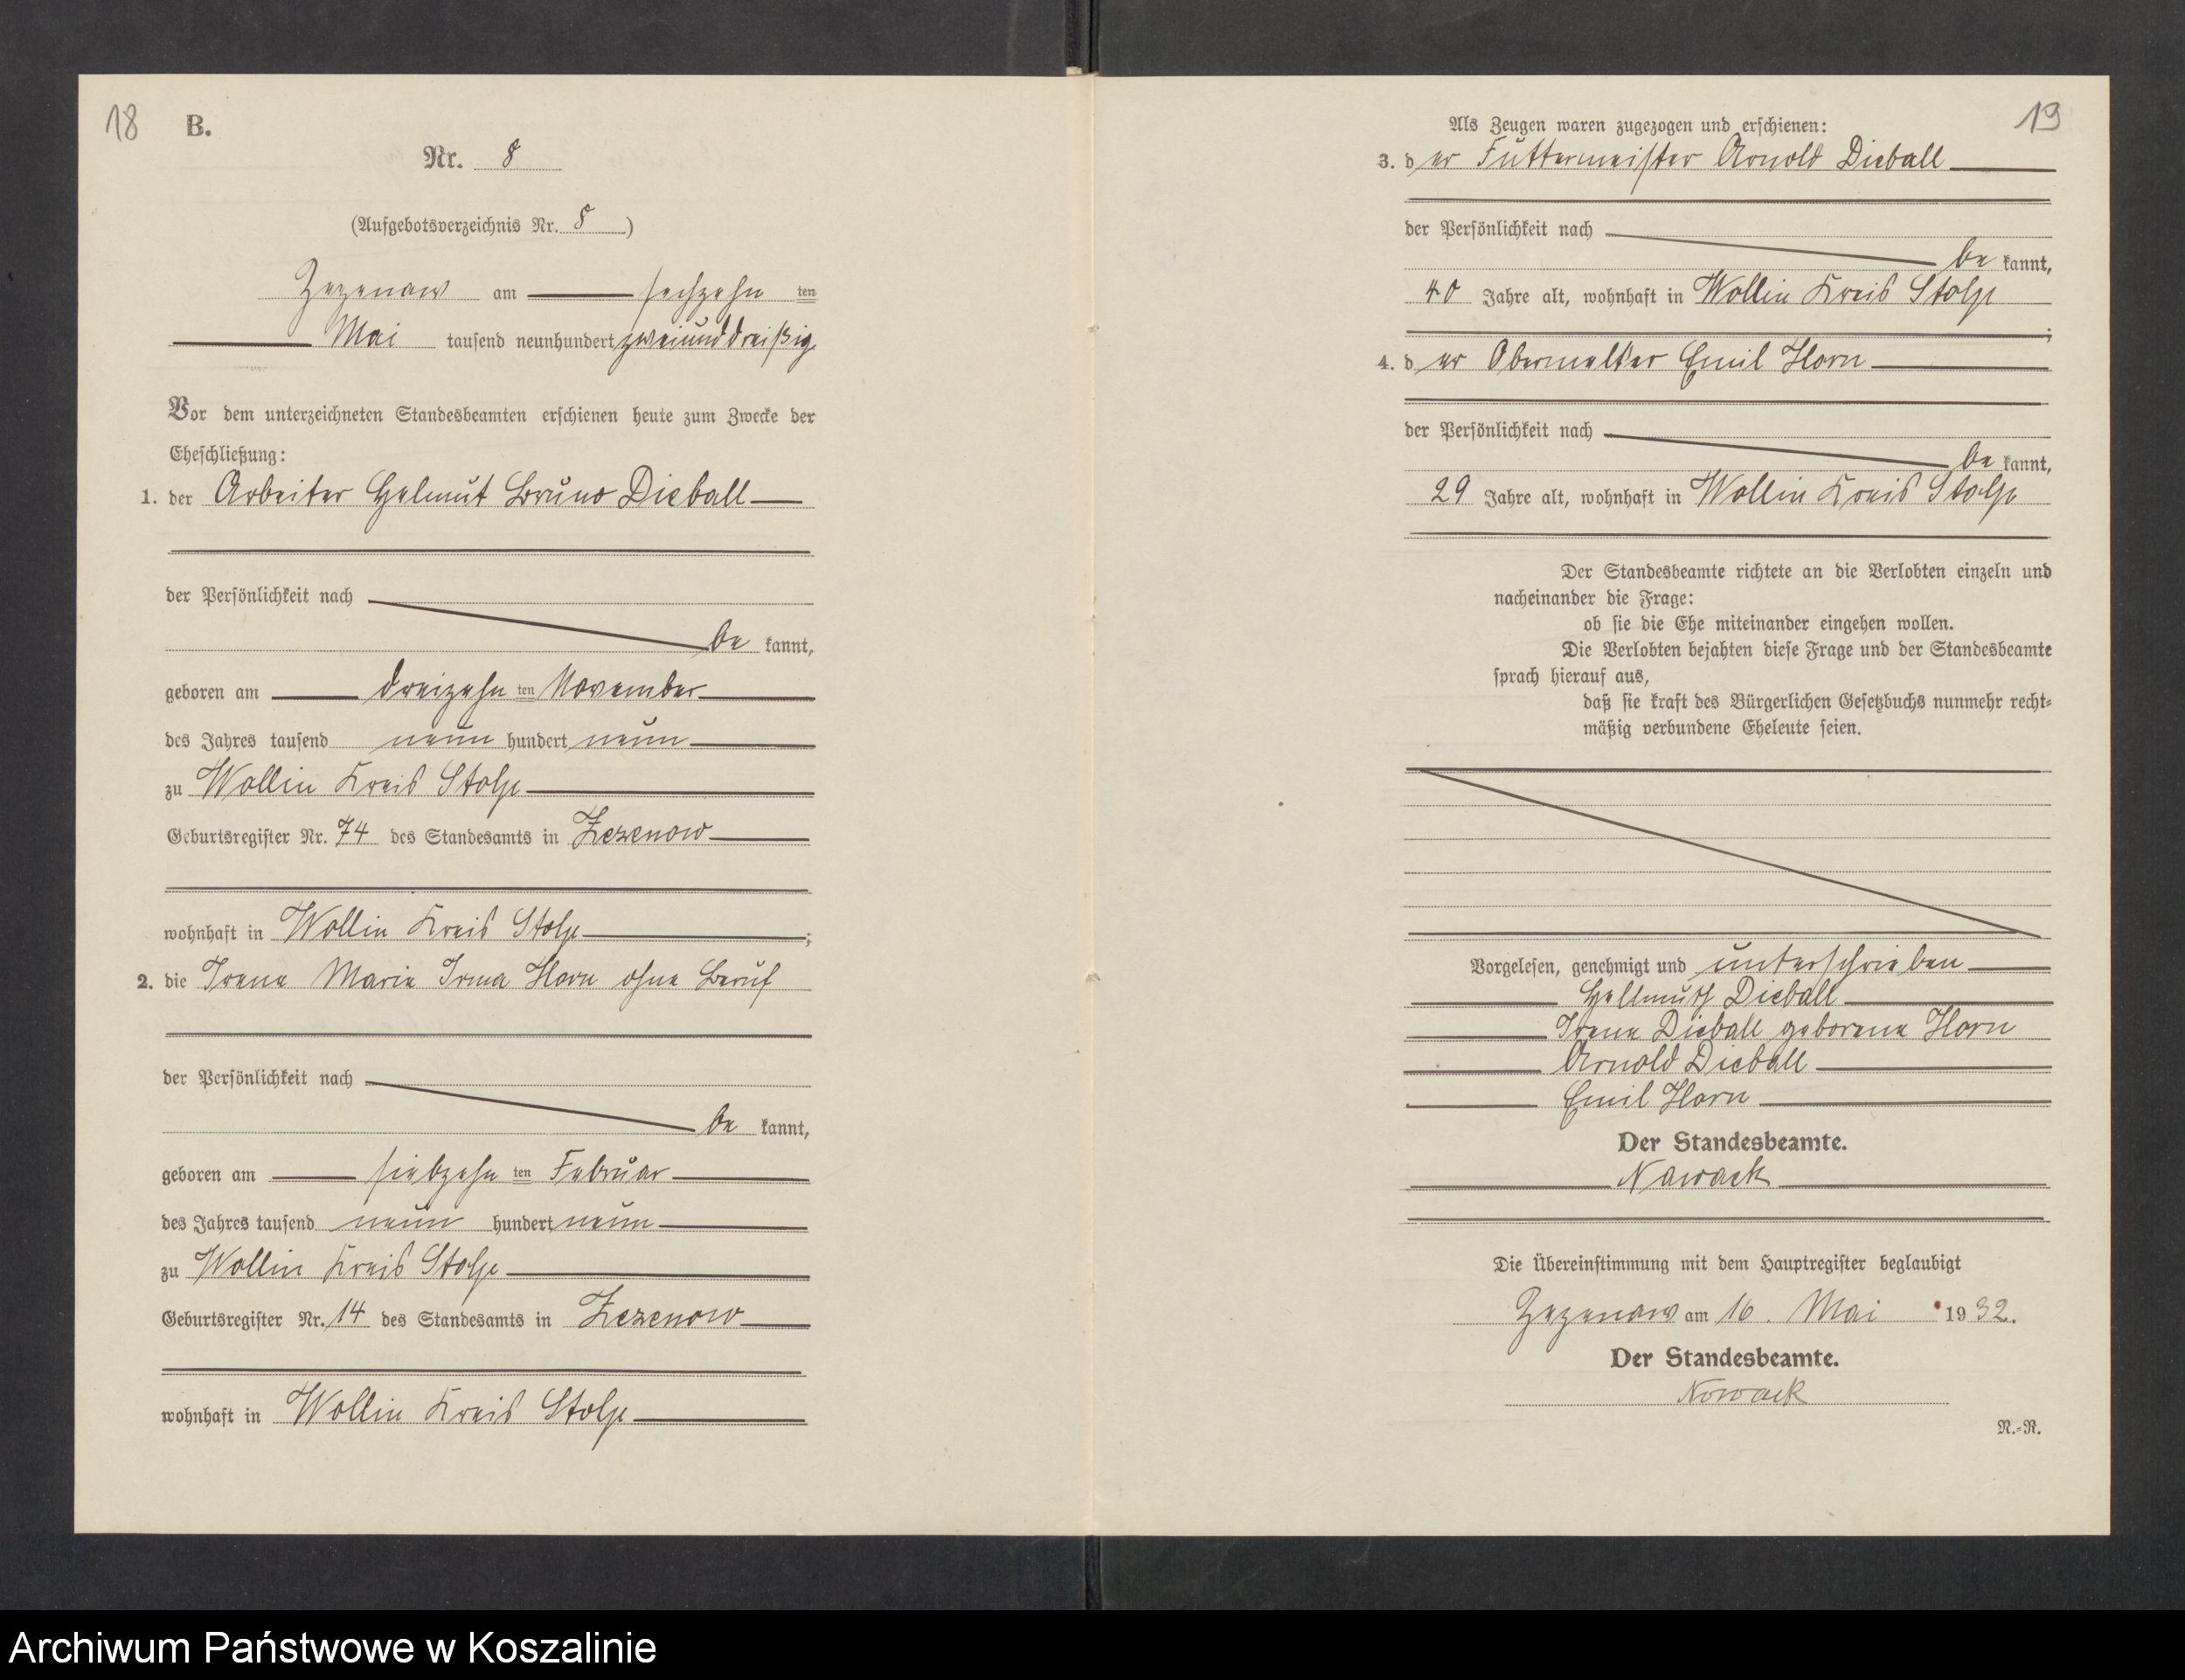 18 B.
Nr. 8
(Aufgebotsverzeichnis Nr. 8)
Zezenow am sechzehn ten
Mai tausend neunhundert zweiunddreißig
Vor dem unterzeichneten Standesbeamten erschienen heute zum Zwecke der
Eheschließung:
1. der Arbeiter Helmut Bruno Dieball
der Persönlichkeit nach
be kannt,
geboren am dreizehn ten November
des Jahres tausend neun hundert neun
zu Wollin Kreis Stolp
Geburtsregister Nr. 74 des Standesamts in Zezenow
wohnhaft in Wollin Kreis Stolp ;
2. die Irene Marie Irma Horn ohne Beruf
der Persönlichkeit nach
be kannt,
geboren am siebzehn ten Februar
des Jahres tausend neun hundert neun
zu Wollin Kreis Stolp
Geburtsregister Nr. 14 des Standesamts in Zezenow
wohnhaft in Wollin Kreis Stolp
19
Als Zeugen waren zugezogen und erschienen:
3. der Futtermeister Arnold Dieball
der Persönlichkeit nach
be kannt,
40 Jahre alt, wohnhaft in Wollin Kreis Stolp
;
4. der Obermelker Emil Horn
der Persönlichkeit nach
be kannt,
29 Jahre alt, wohnhaft in Wollin Kreis Stolp
Der Standesbeamte richtete an die Verlobten einzeln und
nacheinander die Frage:
ob sie die Ehe miteinander eingehen wollen.
Die Verlobten bejahten diese Frage und der Standesbeamte
sprach hierauf aus,
daß sie kraft des Bürgerlichen Gesetzbuchs nunmehr recht-
mäßig verbundene Eheleute seien.
Vorgelesen, genehmigt und unterschrieben
Hellmuth Dieball
Irene Dieball geborene Horn
Arnold Dieball
Emil Horn
Der Standesbeamte.
Nowack
Die Übereinstimmung mit dem Hauptregister beglaubigt
Zezenow am 16. Mai 1932.
Der Standesbeamte.
Nowack
N.-R.
Archiwum Państwowe w Koszalinie